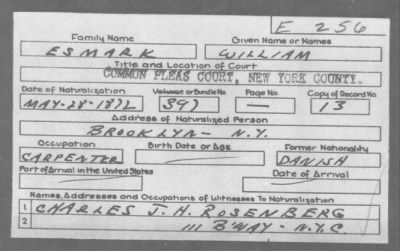 E 256
Family Name Given Name or Names
ESMARK WILLIAM
Title and Location of Court
COMMON PLEAS COURT, NEW YORK COUNTY.
Date of Naturalization Volume or Bundle No. Page No. Copy of Record No.
MAY-28-1872 391 — 13
Address of Naturalized Person
BROOKLYN - N.Y.
Occupation Birth Date or Age Former Nationality
CARPENTER DANISH
Port of Arrival in the United States Date of Arrival
Names, Addresses and Occupations of Witnesses To Naturalization
1 CHARLES J. H. ROSENBERG
2 111 B'WAY - N.Y.C